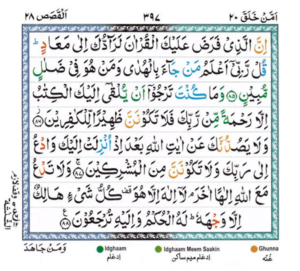 ٢٠ اَمَّنْ خَلَقَ ٣٩٧ اَلْقَصَص ٢٨
اِنَّ الَّذِيْ فَرَضَ عَلَيْكَ الْقُرْاٰنَ لَرَآدُّكَ اِلٰى مَعَادٍ ؕ
قُلْ رَّبِّيْۤ اَعْلَمُ مَنْ جَآءَ بِالْهُدٰى وَمَنْ هُوَ فِيْ ضَلٰلٍ
مُّبِيْنٍ ﴿٨٥﴾ وَمَا كُنْتَ تَرْجُوْۤا اَنْ يُّلْقٰۤى اِلَيْكَ الْكِتٰبُ
اِلَّا رَحْمَةً مِّنْ رَّبِّكَ فَلَا تَكُوْنَنَّ ظَهِيْرًا لِّلْكٰفِرِيْنَ ﴿٨٦﴾
وَلَا يَصُدُّنَّكَ عَنْ اٰيٰتِ اللّٰهِ بَعْدَ اِذْ اُنْزِلَتْ اِلَيْكَ وَادْعُ
اِلٰى رَبِّكَ وَلَا تَكُوْنَنَّ مِنَ الْمُشْرِكِيْنَ ﴿٨٧﴾ وَلَا تَدْعُ
مَعَ اللّٰهِ اِلٰهًا اٰخَرَ ۘ لَاۤ اِلٰهَ اِلَّا هُوَ ۫ كُلُّ شَيْءٍ هَالِكٌ
اِلَّا وَجْهَهٗ ؕ لَهُ الْحُكْمُ وَاِلَيْهِ تُرْجَعُوْنَ ﴿٨٨﴾
Idghaam Idghaam Meem Saakin Ghunna
اِدغام اِدغام میم ساکن غُنّه